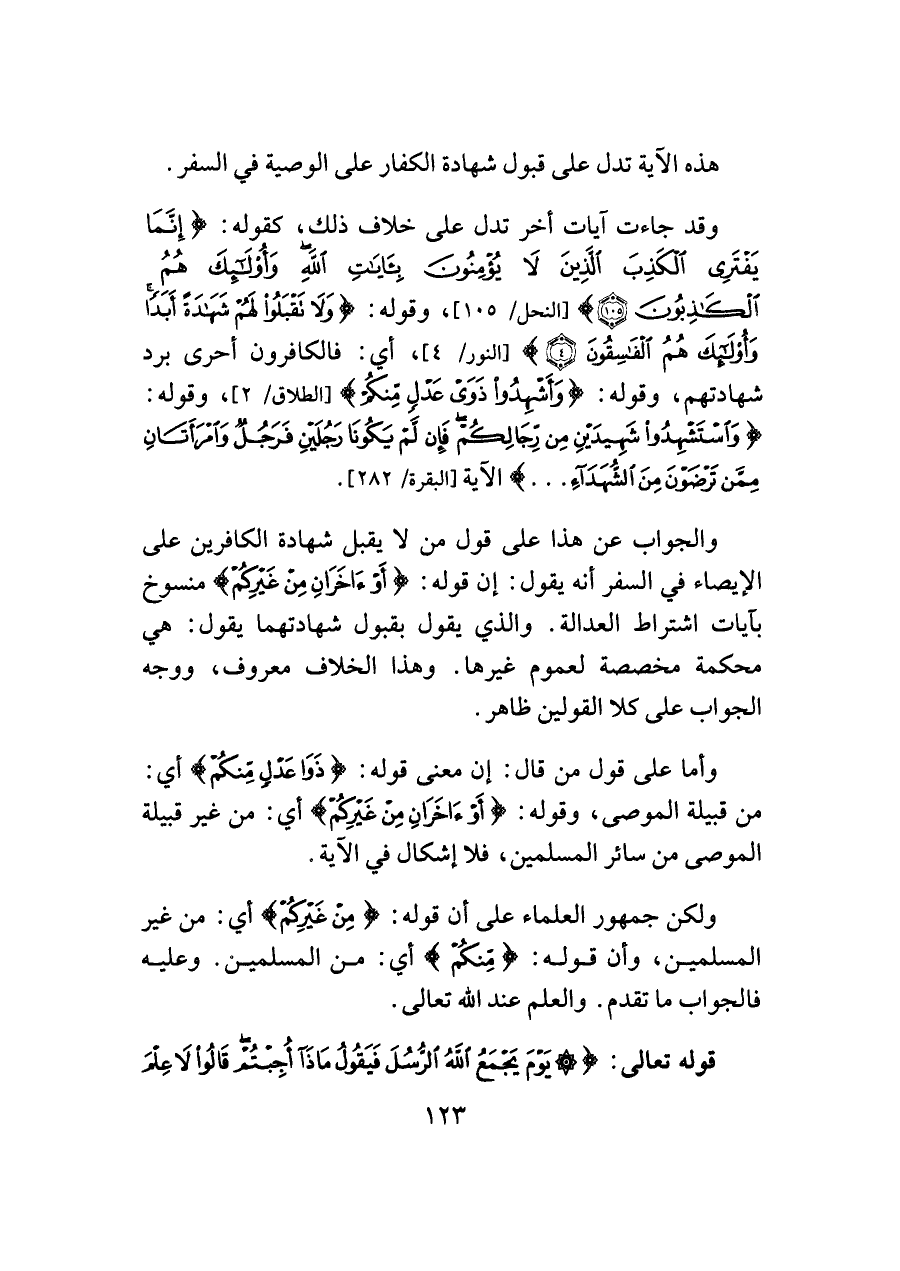 هذه الآية تدل على قبول شهادة الكفار على الوصية في السفر.
وقد جاءت آيات أخر تدل على خلاف ذلك، كقوله: ﴿ إِنَّمَا
يَفْتَرِى ٱلْكَذِبَ ٱلَّذِينَ لَا يُؤْمِنُونَ بِـَٔايَٰتِ ٱللَّهِ ۖ وَأُو۟لَٰٓئِكَ هُمُ
ٱلْكَٰذِبُونَ ١٠٥﴾ [النحل/ ١٠٥]، وقوله: ﴿ وَلَا تَقْبَلُوا۟ لَهُمْ شَهَٰدَةً أَبَدًا ۚ
وَأُو۟لَٰٓئِكَ هُمُ ٱلْفَٰسِقُونَ ٤ ﴾ [النور/ ٤]، أي: فالكافرون أحرى برد
شهادتهم، وقوله: ﴿ وَأَشْهِدُوا۟ ذَوَىْ عَدْلٍ مِّنكُمْ ﴾ [الطلاق/ ٢]، وقوله:
﴿ وَٱسْتَشْهِدُوا۟ شَهِيدَيْنِ مِن رِّجَالِكُمْ ۖ فَإِن لَّمْ يَكُونَا رَجُلَيْنِ فَرَجُلٌ وَٱمْرَأَتَانِ
مِمَّن تَرْضَوْنَ مِنَ ٱلشُّهَدَآءِ. . . ﴾ الآية [البقرة/ ٢٨٢].
والجواب عن هذا على قول من لا يقبل شهادة الكافرين على
الإيصاء في السفر أنه يقول: إن قوله: ﴿ أَوْ ءَاخَرَانِ مِنْ غَيْرِكُمْ ﴾ منسوخ
بآيات اشتراط العدالة. والذي يقول بقبول شهادتهما يقول: هي
محكمة مخصصة لعموم غيرها. وهذا الخلاف معروف، ووجه
الجواب على كلا القولين ظاهر.
وأما على قول من قال: إن معنى قوله: ﴿ ذَوَا عَدْلٍ مِّنكُمْ ﴾ أي:
من قبيلة الموصى، وقوله: ﴿ أَوْ ءَاخَرَانِ مِنْ غَيْرِكُمْ ﴾ أي: من غير قبيلة
الموصى من سائر المسلمين، فلا إشكال في الآية.
ولكن جمهور العلماء على أن قوله: ﴿ مِنْ غَيْرِكُمْ ﴾ أي: من غير
المسلميـن، وأن قـولـه: ﴿ مِّنكُمْ ﴾ أي: مـن المسلميـن. وعليـه
فالجواب ما تقدم. والعلم عند الله تعالى.
قوله تعالى: ﴿ ۞ يَوْمَ يَجْمَعُ ٱللَّهُ ٱلرُّسُلَ فَيَقُولُ مَاذَآ أُجِبْتُمْ ۖ قَالُوا۟ لَا عِلْمَ
١٢٣